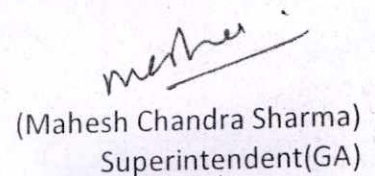 (Mahesh Chandra Sharma)
Superintendent(GA)